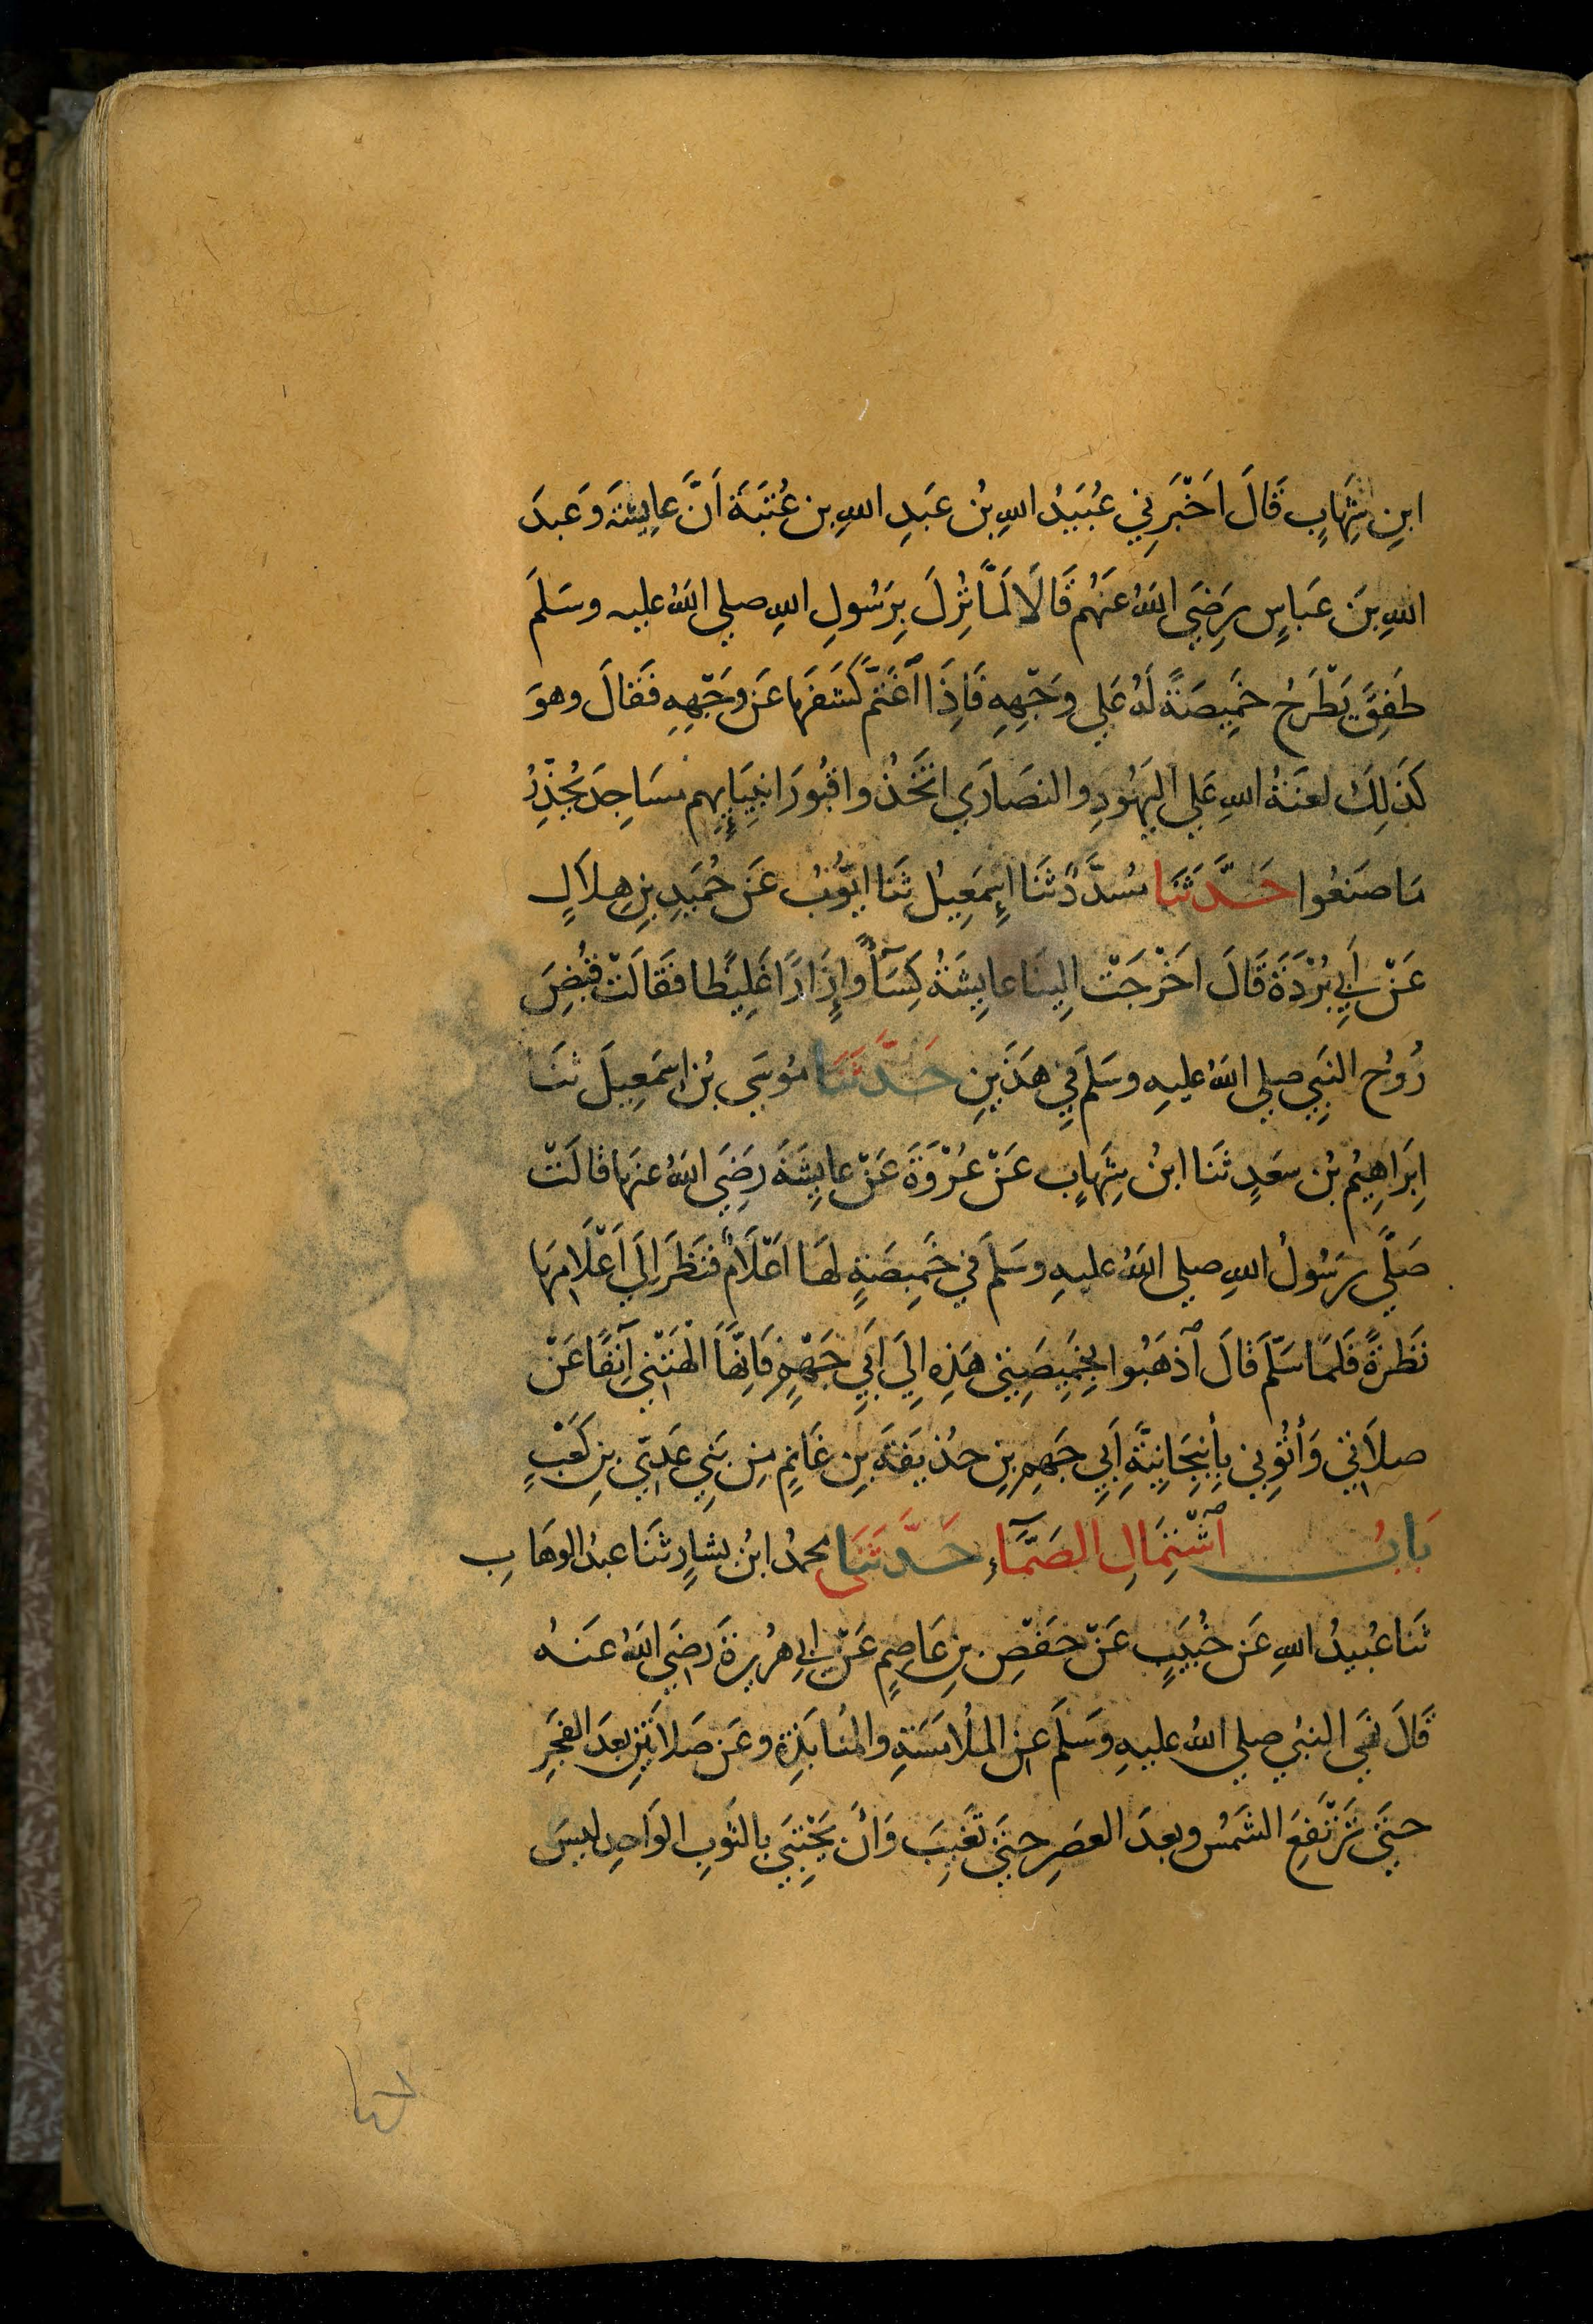 ابنِ شِهَابٍ قَالَ اَخْبَرَنِي عُبَيْدُ اللهِ بْنُ عَبدِ اللهِ بنِ عُتْبَةَ اَنَّ عَايِشَةَ وَعَبدَ
اللهِ بنَ عَباسٍ رَضِيَ اللهُ عَنهُم قَالَا لَمَّا نُزِلَ بِرَسُولِ اللهِ صلي اللهُ عليه وسَلمَ
طَفِقَ يَطْرَحُ خَمِيصَةً لَهُ عَلي وَجْهِهِ فَاِذَا اغْتَمَّ كَشَفَهَا عَن وَجْهِهِ فَقَالَ وهوَ
كَذَلِكَ لعنَةُ اللهِ عَلي اليَهُودِ والنصَارَي اتَّخَذُوا قُبُورَ انبِيَايِهِم مسَاجِدَ يُحَذِّرُ
مَا صَنَعُوا حَدَّثَنَا مسَدَّدٌ ثَنَا اِسمَعِيلُ ثَنَا ايّوُبُ عَن حُمَيدِ بنِ هِلاَلٍ
عَنْ اَبِي بُرْدَةَ قَالَ اَخْرَجَتْ اِلينَا عايِشَةُ كِسَآءً وَاِزَارًا غَلِيظًا فَقَالَتْ قُبِضَ
رُوحُ النَبِي صلي اللهُ عليهِ وسَلمَ فِي هَذَينِ حَدَّثَنَا مُوسَي بْنُ اسمَعِيلَ ثنَا
اِبرَاهِيمُ بْنُ سعَدٍ ثَنَا ابنُ شِهَابٍ عَنْ عُرْوَةَ عَنْ عايِشَةَ رَضِيَ اللهُ عنهَا قالَتْ
صَلَّي رَسُولُ اللهِ صلي اللهُ عليهِ وسَلمَ في خَمِيصَةٍ لهَا اَعْلَامٌ فَنَظَرَ اِلَي اَعْلَامِهَا
نَظرَةً فَلمَا سَلّمَ قَالَ اذهَبُوا بِخَمِيصَتِي هَذِهِ اِلَي اَبِي جَهْمٍ فَاِنّهَا اَلْهَتْنِي آنِفًا عَنْ
صلاَتِي وَأْتُونِي بِأَنبِجَانِيَّةِ اَبِي جَهمِ بنِ حذيفَةَ بنِ غَانِمٍ مِن بَنِي عَدِيّ بنِ كَعْبٍ
بَابُ اشْتِمَالِ الصَمَّآءِ حَدَّثَنَي محمدُ ابنُ بشارٍ ثَنَا عبدُ الوهَابِ
ثَنَا عُبيدُ اللهِ عَن خُبَيبٍ عَنْ حَفْصِ بنِ عَاصِمٍ عَنْ ابِي هُرَيرةَ رضيَ اللهُ عَنهُ
قَالَ نهَي النبيُ صلي اللهُ عليهِ وسَلَّمَ عنِ المُلَامَسَةِ والمُنابَذةِ وعَن صَلاَتَينِ بعدَ الفَجرِ
حتَي تَرْتَفِعَ الشَمسُ وبعدَ العصَرِ حتَي تَغِيبَ وَاَنْ يَحْتَبِيَ بالثوبِ الوَاحِدِ ليسَ